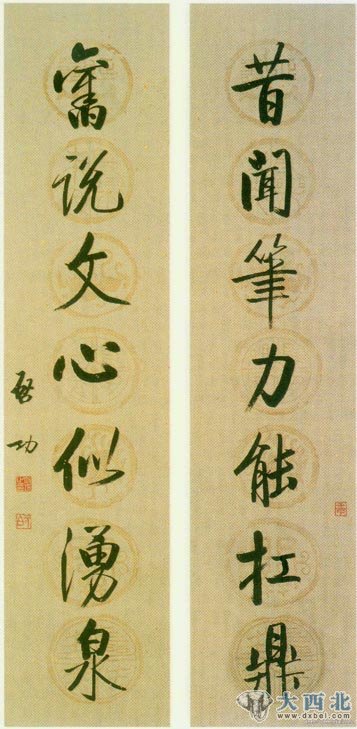 昔聞筆力能扛鼎
舊說文心似湧泉
啓功
大西北
www.dxbei.com